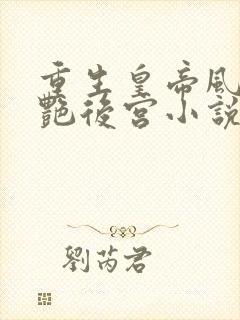 重生皇帝風
艷後宮小說
劉芮君